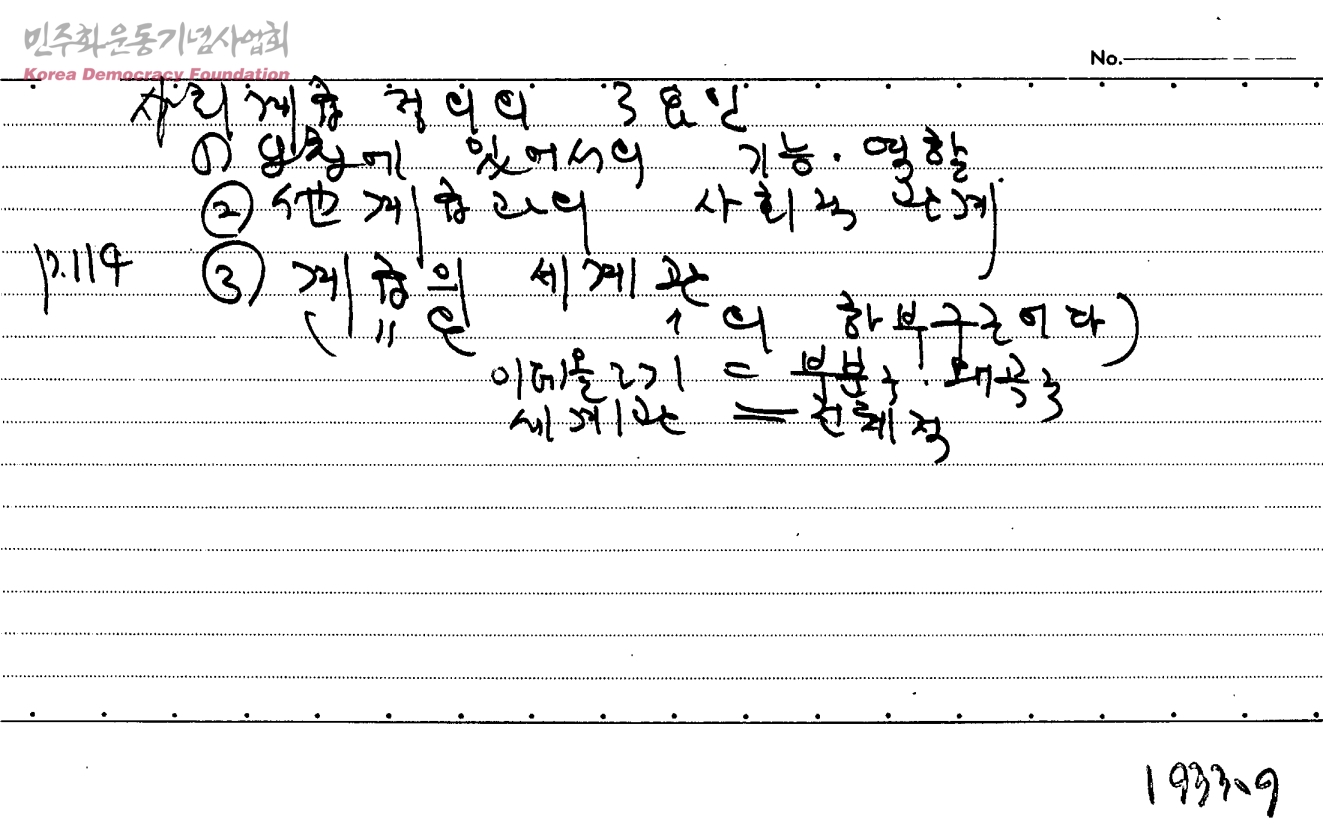 민주화운동기념사업회
Korea Democracy Foundation
No.
사회계층 정의의 3요인
① 에 있어서의 기능·역할
② 계층과의 사회적 관계
p.114 ③ 계층의 세계관
( 〃 은 ↑의 하부구조이다)
이데올로기 = 부분적·왜곡
세계관 = 전체적
1933.9